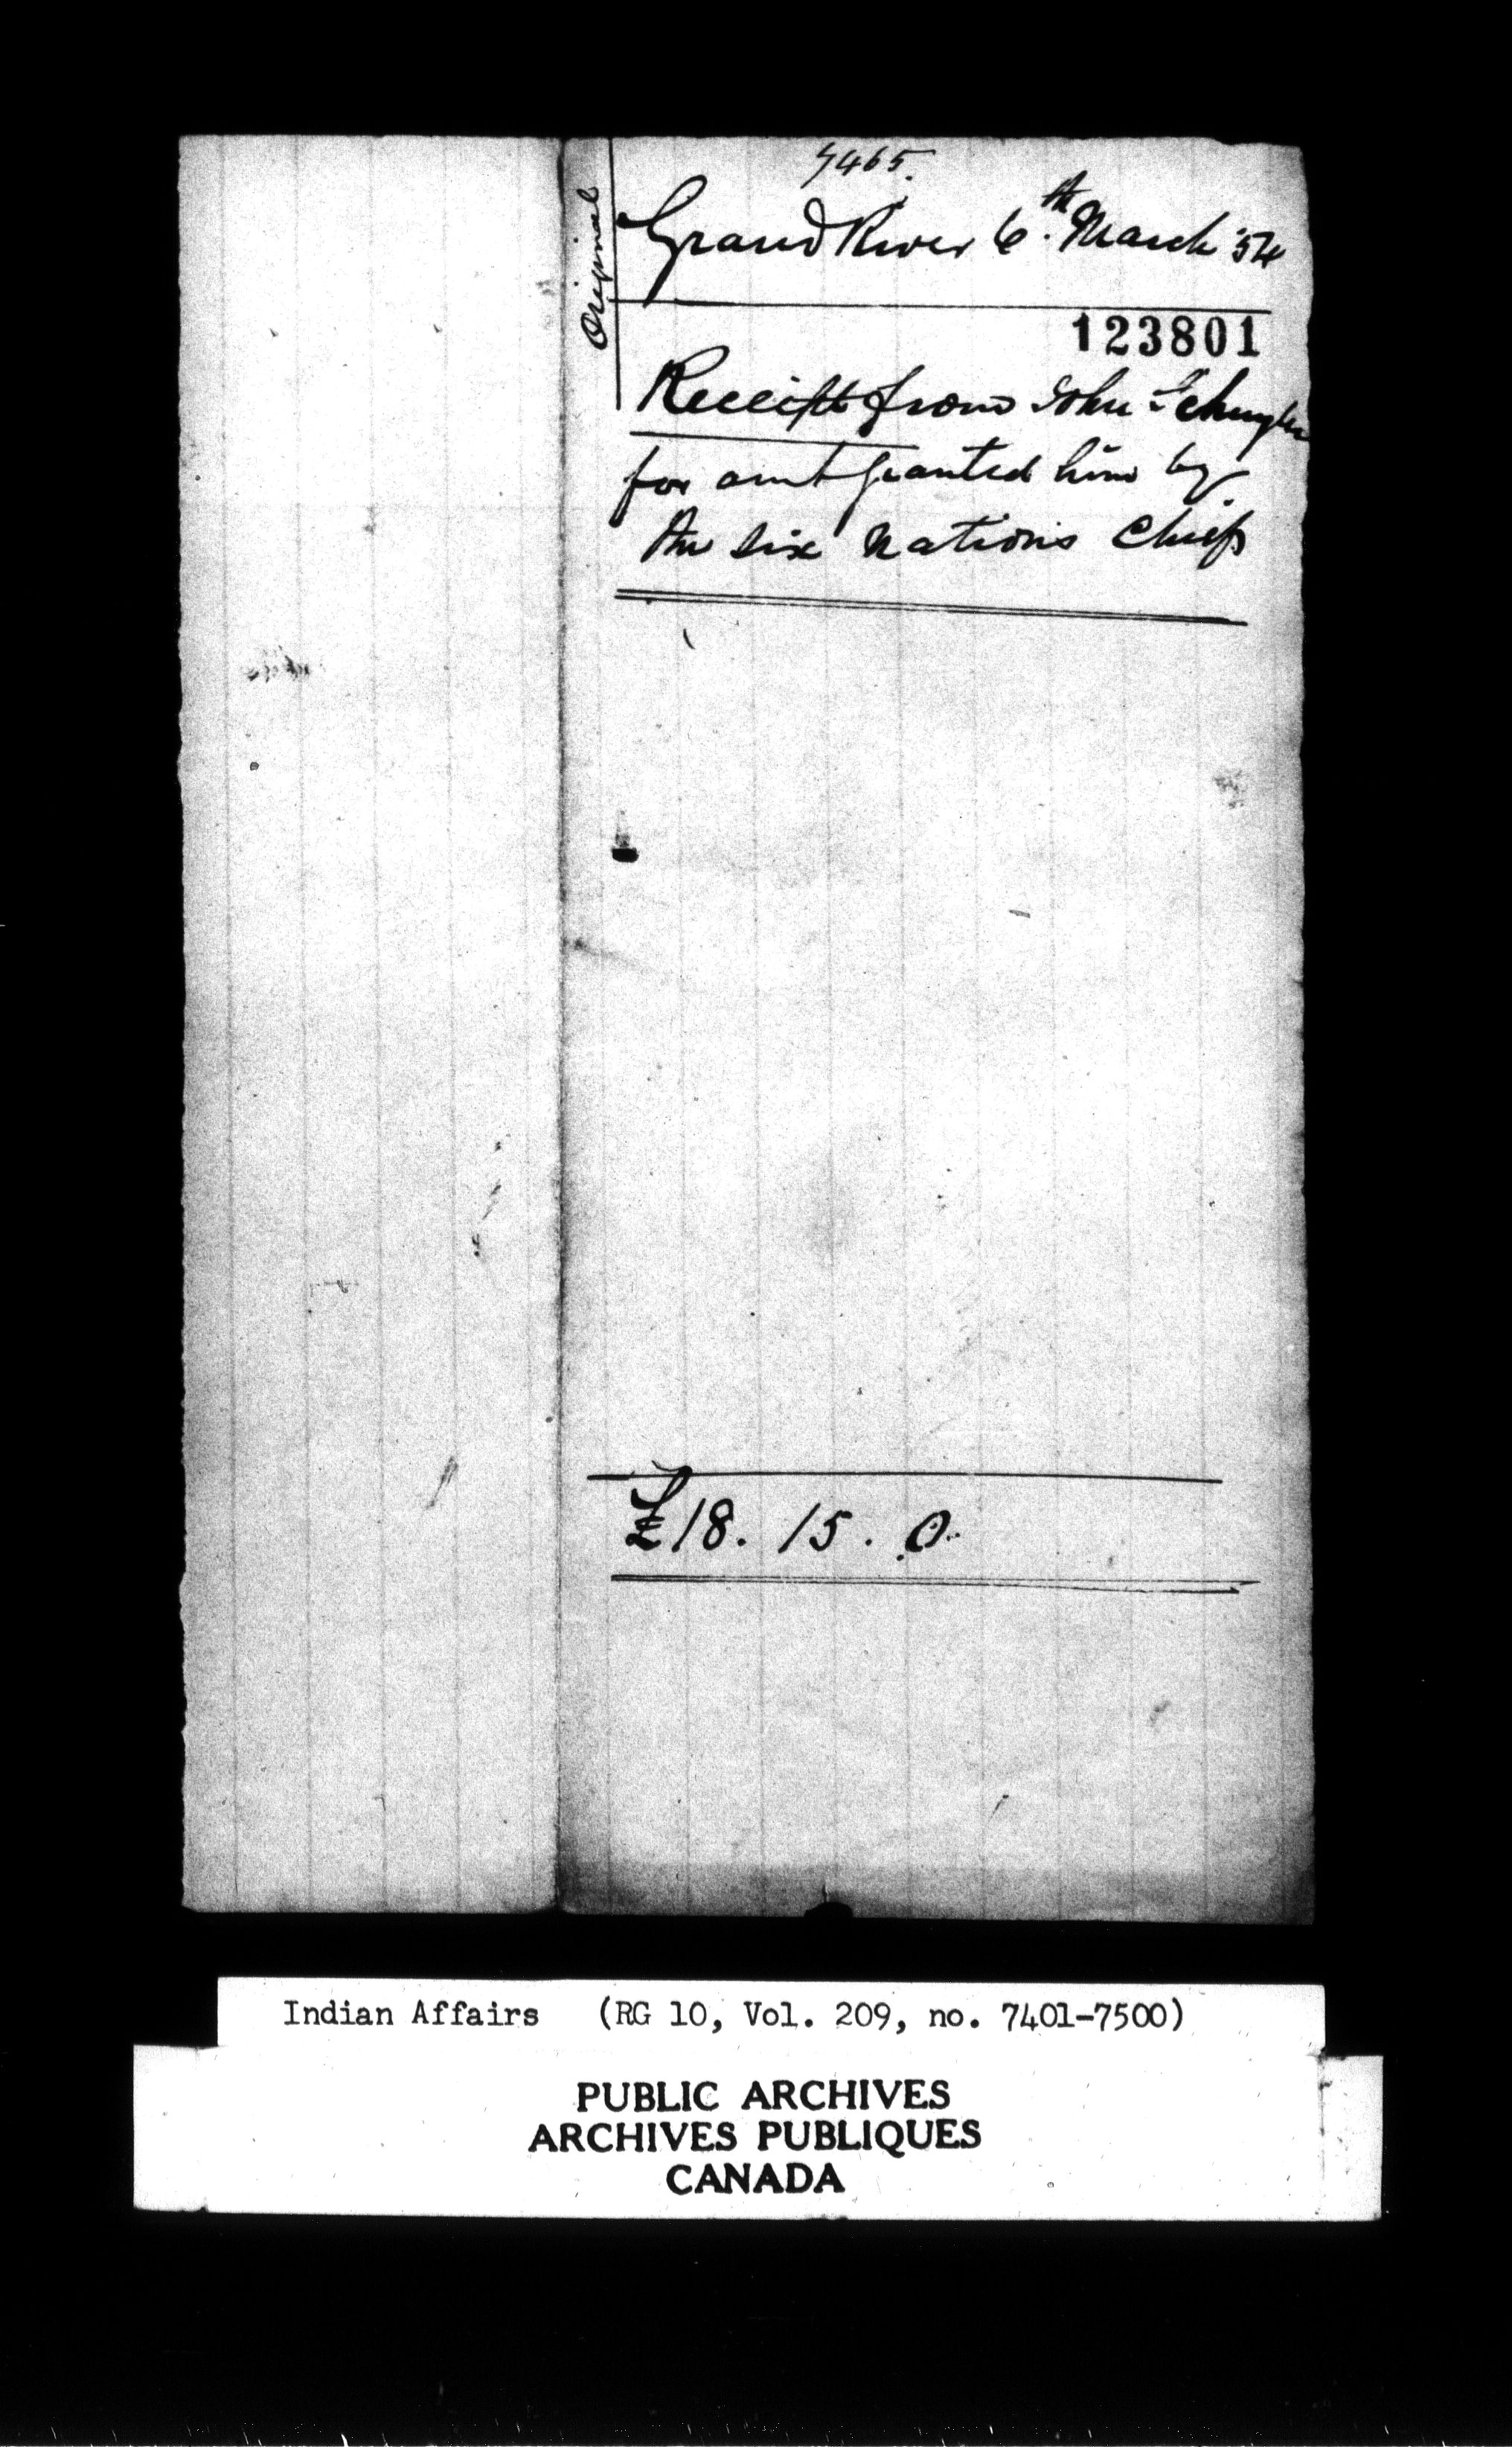 7465.
Original
Grand River 6th. March '54
123801
Receipt from John Schuyler
for amt granted him by
the Six Nations Chiefs
£18. 15. 0.
Indian Affairs (RG 10, Vol. 209, no. 7401-7500)
PUBLIC ARCHIVES
ARCHIVES PUBLIQUES
CANADA